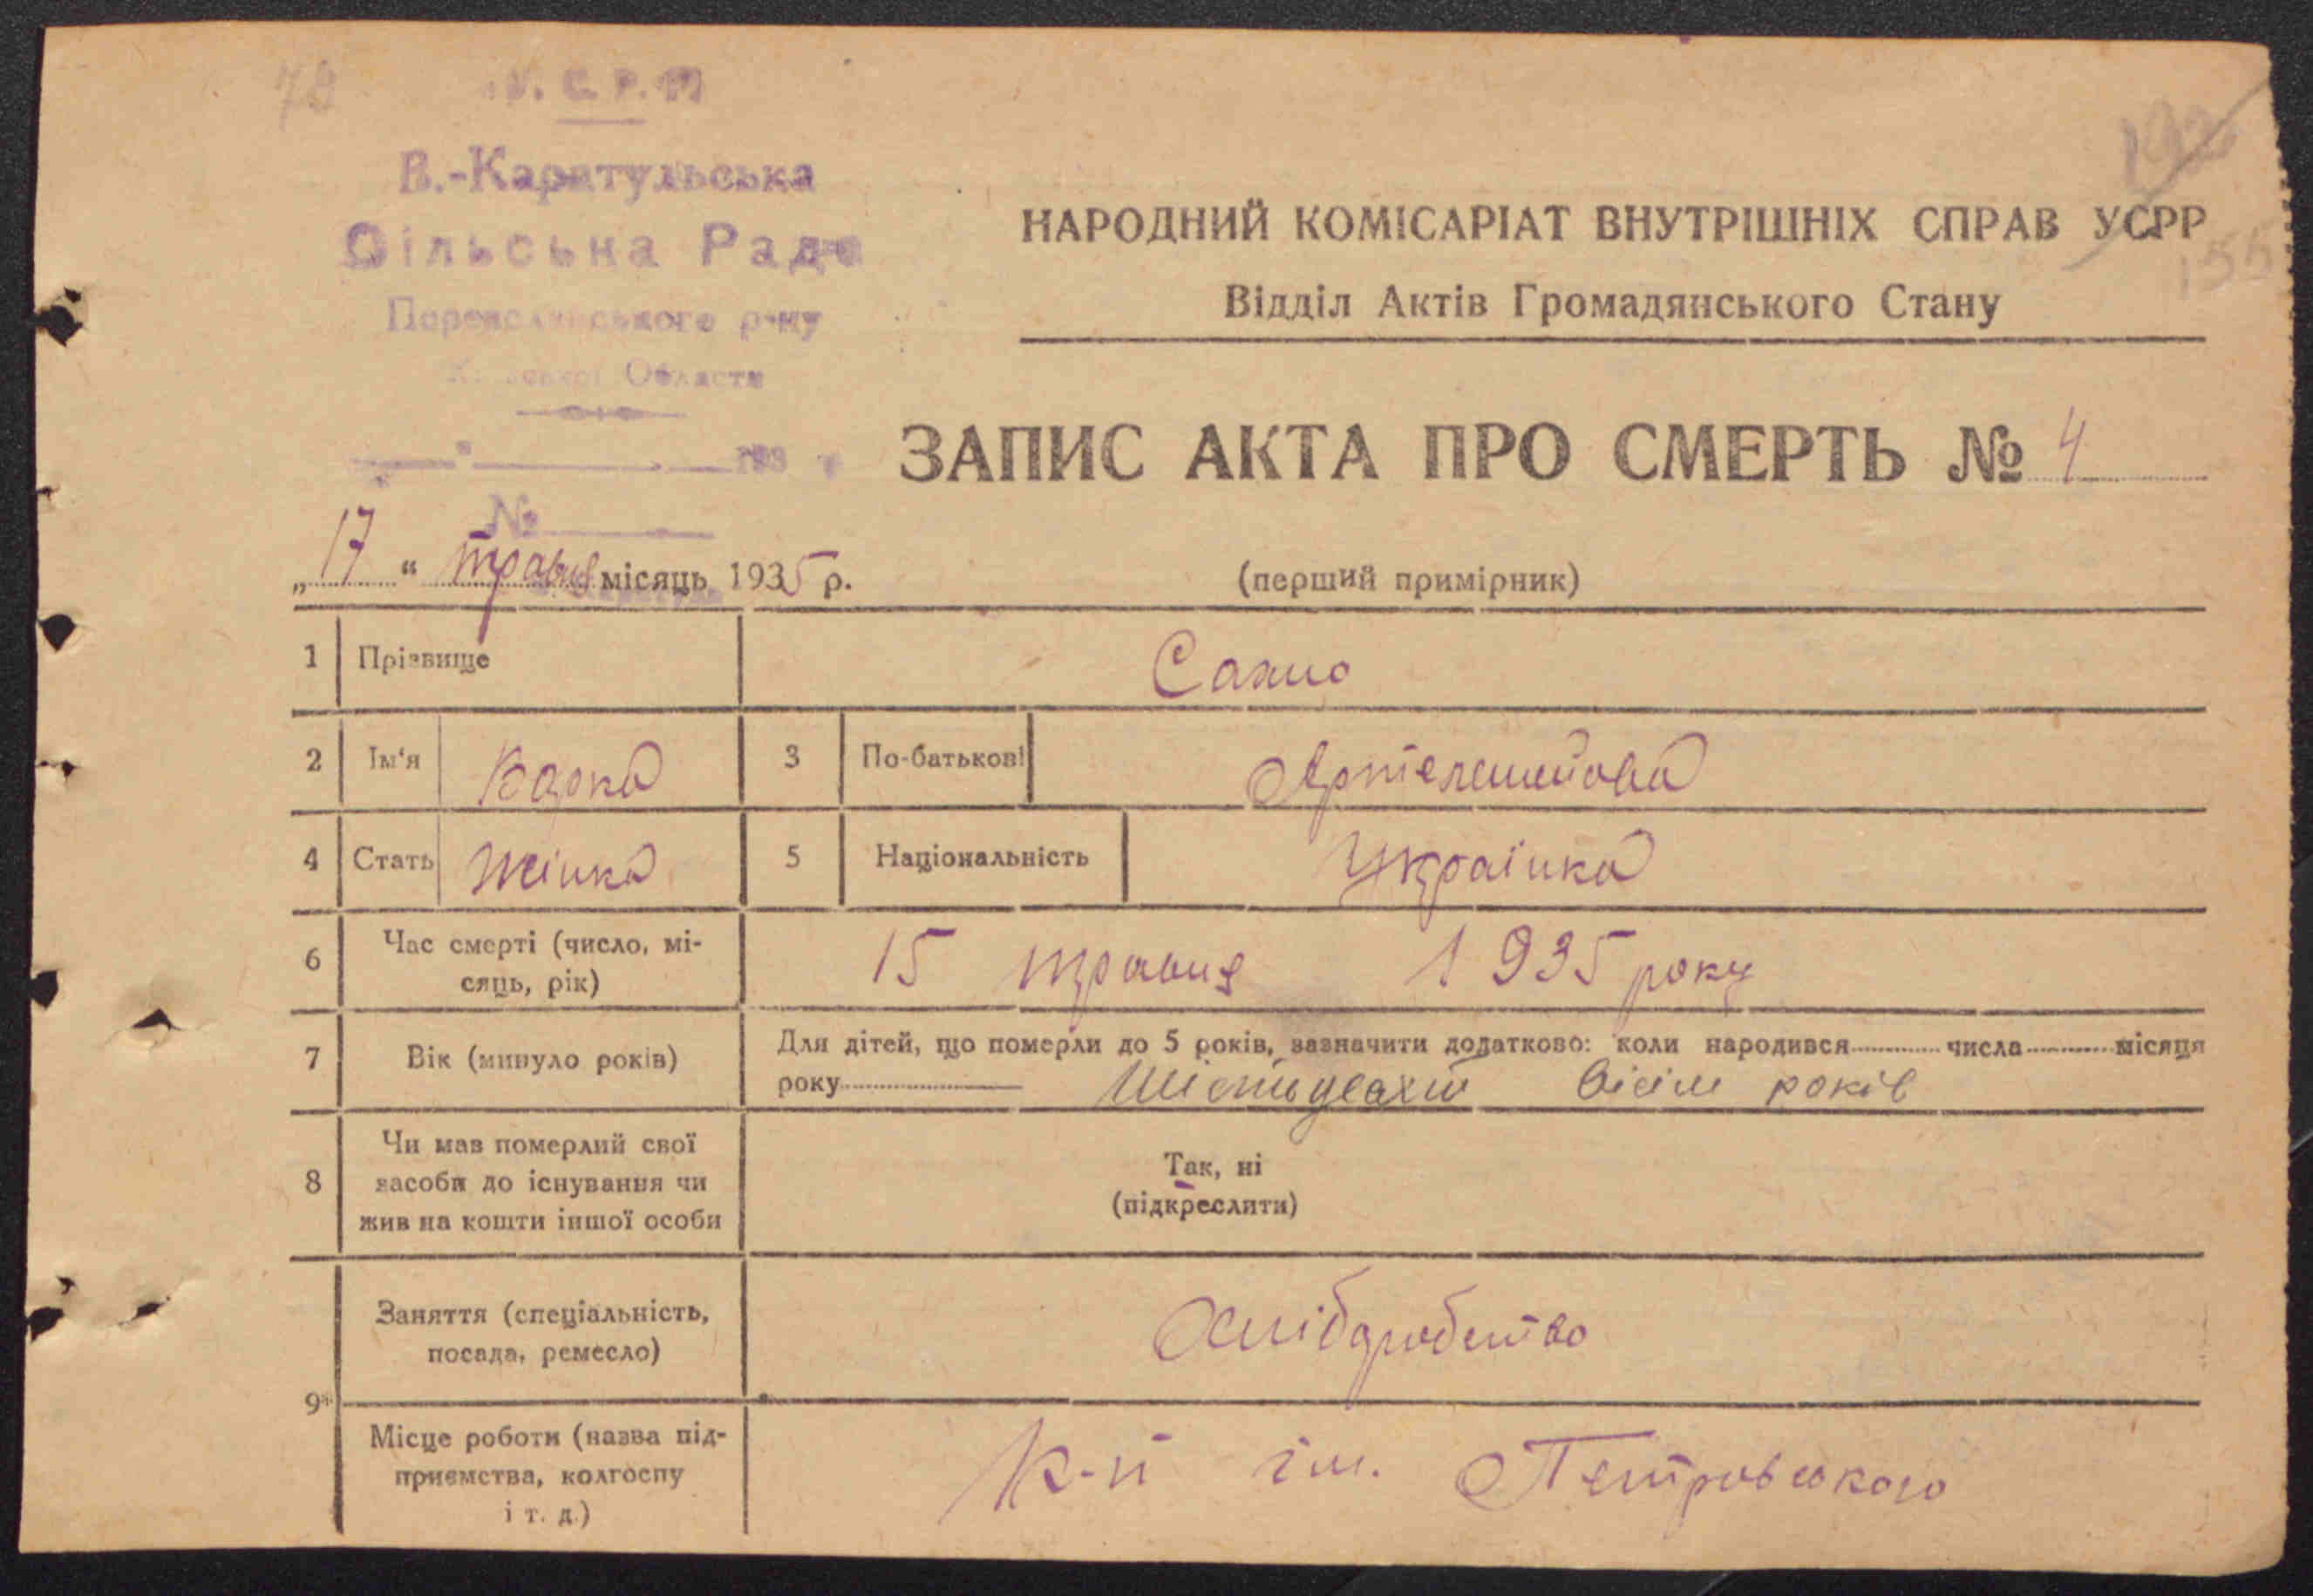 79
У.С.Р.Р.
В.-Каратульська
Сільська Рада
Переяславського р-ну
Київської Области
193 р
№
192
155
НАРОДНИЙ КОМІСАРІАТ ВНУТРІШНІХ СПРАВ УСРР
Відділ Актів Громадянського Стану
ЗАПИС АКТА ПРО СМЕРТЬ № 4
„17“ травня місяць 1935 р.
(перший примірник)
1 Прізвище Сахно
2 Ім'я Варка 3 По-батькові
4 Стать жінка 5 Національність Українка
6 Час смерті (число, мі-
сяць, рік) 15 травня 1935 року
7 Вік (минуло років) Для дітей, що померли до 5 років, зазначити додатково: коли народився числа місяця
року Шістьдесят вісім років
8 Чи мав померлий свої
засоби до існування чи
жив на кошти іншої особи
Так, ні
(підкреслити)
9 Заняття (спеціальність,
посада, ремесло) Хліборобство
Місце роботи (назва під-
приємства, колгоспу
і т. д.)
К-п ім. Петровського